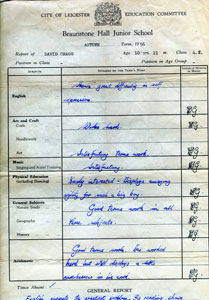 CITY OF LEICESTER EDUCATION COMMITTEE
Braunstone Hall Junior School
AUTUMN Term, 1966
Report of DAVID CRAGG Age 10 yrs. 11 m. Class 4.
Position in Class Position in Age Group
SUBJECTS
English
Shows great difficulty in self
expression
Art and Craft
Craft Works hard
Needlework
Art Satisfactory Terms work.
Music
Singing and Aural Training Satisfactory
Physical Education
(including Dancing)
Fairly interested - Displays
agility for such a big boy
General Subjects
Nature Study
Good Terms work in all
Geography
these subjects.
History
Arithmetic
Good Terms work. Has worked
hard but still displays a little
in his work.
Times Absent
GENERAL REPORT
English presents the greatest problem. His reading shows